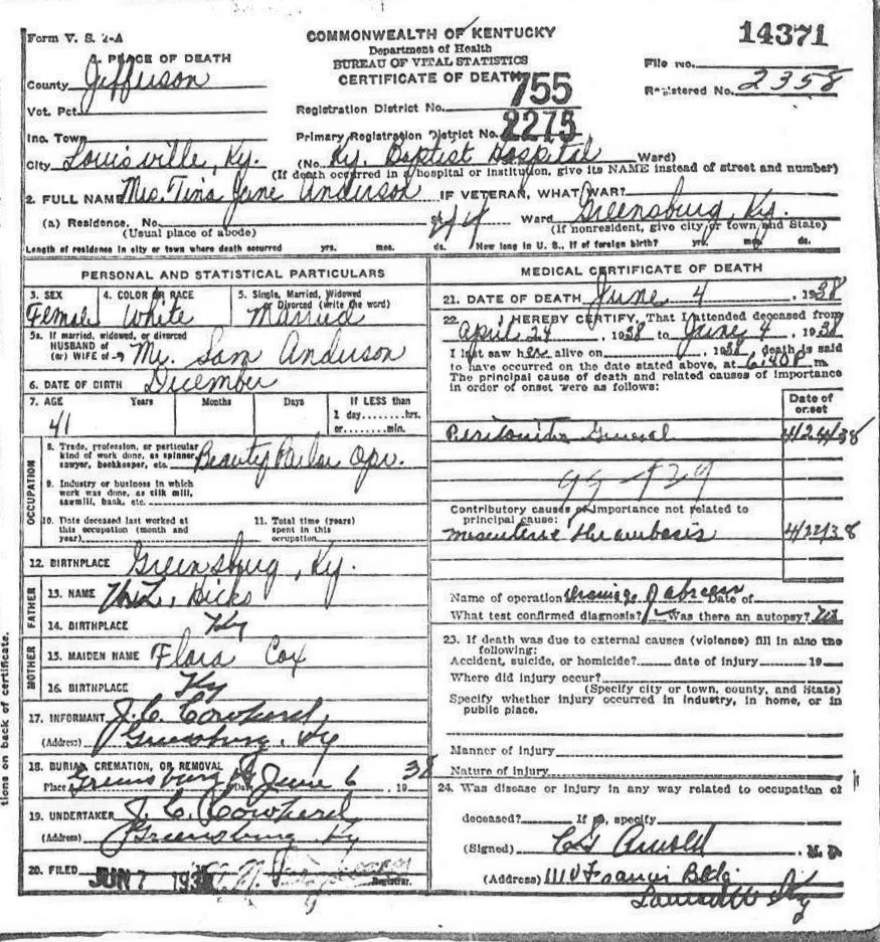 Form V. S. 1-A
COMMONWEALTH OF KENTUCKY
Department of Health
BUREAU OF VITAL STATISTICS
CERTIFICATE OF DEATH
14371
File No.
Registered No. 2358
1. PLACE OF DEATH
County Jefferson
Vot. Pct.
Inc. Town
City Louisville, Ky.
Registration District No. 755
Primary Registration District No. 2275
(No. Ky. Baptist Hospital Ward)
(If death occurred in a hospital or institution, give its NAME instead of street and number)
2. FULL NAME Mrs. Tina Jane Anderson IF VETERAN, WHAT WAR?
(a) Residence. No. Ward Greensburg, Ky.
(Usual place of abode) (If nonresident, give city or town and State)
Length of residence in city or town where death occurred yrs. mos. ds. How long in U. S., if of foreign birth? yrs. mos. ds.
PERSONAL AND STATISTICAL PARTICULARS
3. SEX Female
4. COLOR OR RACE White
5. Single, Married, Widowed
or Divorced (write the word)
Married
5a. If married, widowed, or divorced
HUSBAND of
(or) WIFE of Mr. Sam Anderson
6. DATE OF BIRTH December
7. AGE Years Months Days If LESS than
1 day........hrs.
or........min.
41
OCCUPATION
8. Trade, profession, or particular
kind of work done, as spinner,
sawyer, bookkeeper, etc. Beauty Parlor Opr.
9. Industry or business in which
work was done, as silk mill,
sawmill, bank, etc.
10. Date deceased last worked at
this occupation (month and
year)
11. Total time (years)
spent in this
occupation
12. BIRTHPLACE Greensburg, Ky.
FATHER
13. NAME Hicks
14. BIRTHPLACE Ky
MOTHER
15. MAIDEN NAME Flora Cox
16. BIRTHPLACE Ky
17. INFORMANT J. C. Cowherd,
(Address) Greensburg, Ky
18. BURIAL, CREMATION, OR REMOVAL
Place Greensburg Date June 6 1938
19. UNDERTAKER J. C. Cowherd,
(Address) Greensburg Ky
20. FILED JUN 7 193
Registrar.
MEDICAL CERTIFICATE OF DEATH
21. DATE OF DEATH June 4, 1938
22. I HEREBY CERTIFY, That I attended deceased from
April 24, 1938 to June 4, 1938
I last saw her alive on , 1938 death is said
to have occurred on the date stated above, at m.
The principal cause of death and related causes of importance
in order of onset were as follows:
Date of
onset
Peritonitis General 4/24/38
Contributory causes of importance not related to
principal cause:
Mesenteric Thrombosis 4/22/38
Name of operation Drainage abscess Date of
What test confirmed diagnosis? Was there an autopsy?
23. If death was due to external causes (violence) fill in also the
following:
Accident, suicide, or homicide? date of injury 19
Where did injury occur?
(Specify city or town, county, and State)
Specify whether injury occurred in industry, in home, or in
public place.
Manner of injury
Nature of injury
24. Was disease or injury in any way related to occupation of
deceased? If so, specify
(Signed) Arnold M. D.
(Address) Francis Bldg.
Louisville Ky
tions on back of certificate.